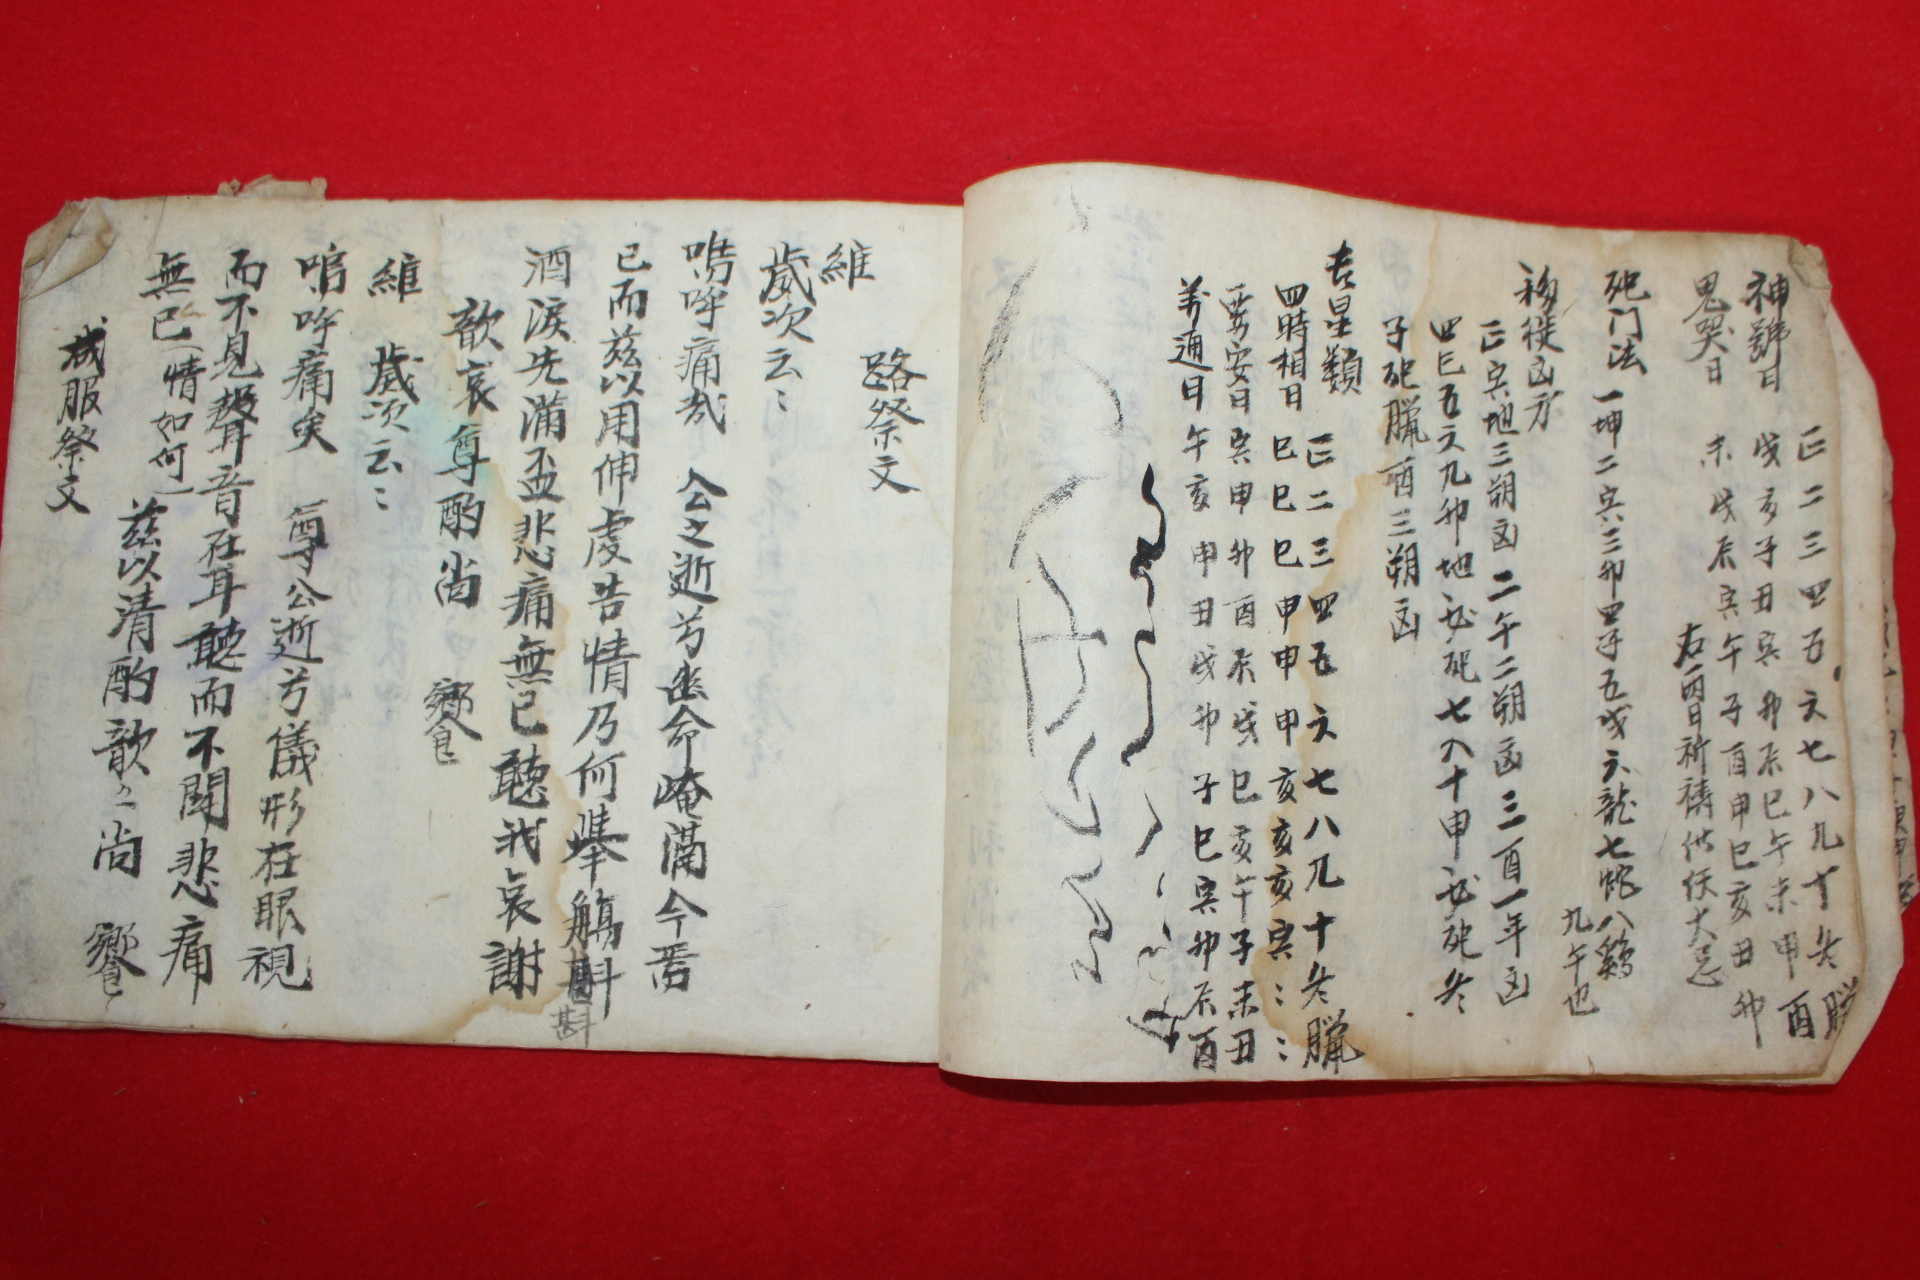 正二三四五六七八九十冬臘
神號日 戌亥子丑寅卯辰巳午未申酉
鬼哭日 未戌辰寅午子酉申巳亥丑卯
右兩日祈禱供佛大忌
死门法 一坤二寅三卯四子五戌六龍七蛇八鷄
九午也
移徙凶方
正寅地三朔凶二午二朔凶三酉一年凶
四巳五六九卯地必死七八十申必死冬
子死臘酉三朔凶
吉星類 正二三四五六七八九十冬臘
四時相日 巳巳巳申申申亥亥亥寅〻〻
要安日 寅申卯酉辰戌巳亥午子未丑
萬通日 午亥申丑戌卯子巳寅卯辰酉
路祭文
維
歲次云〻
嗚呼痛哉 公之逝兮 命奄 今
已而玆以用伸虔告情乃何 觴斟
斟
酒淚先滿盃悲痛無已聽我哀謝
歆哀尊酌尚 饗
維 歲次云〻
嗚呼痛矣 尊公逝兮儀形在眼視
而不見聲音在耳聽而不聞悲痛
無已情如何 玆以清酌歆〻尚 饗
成服祭文